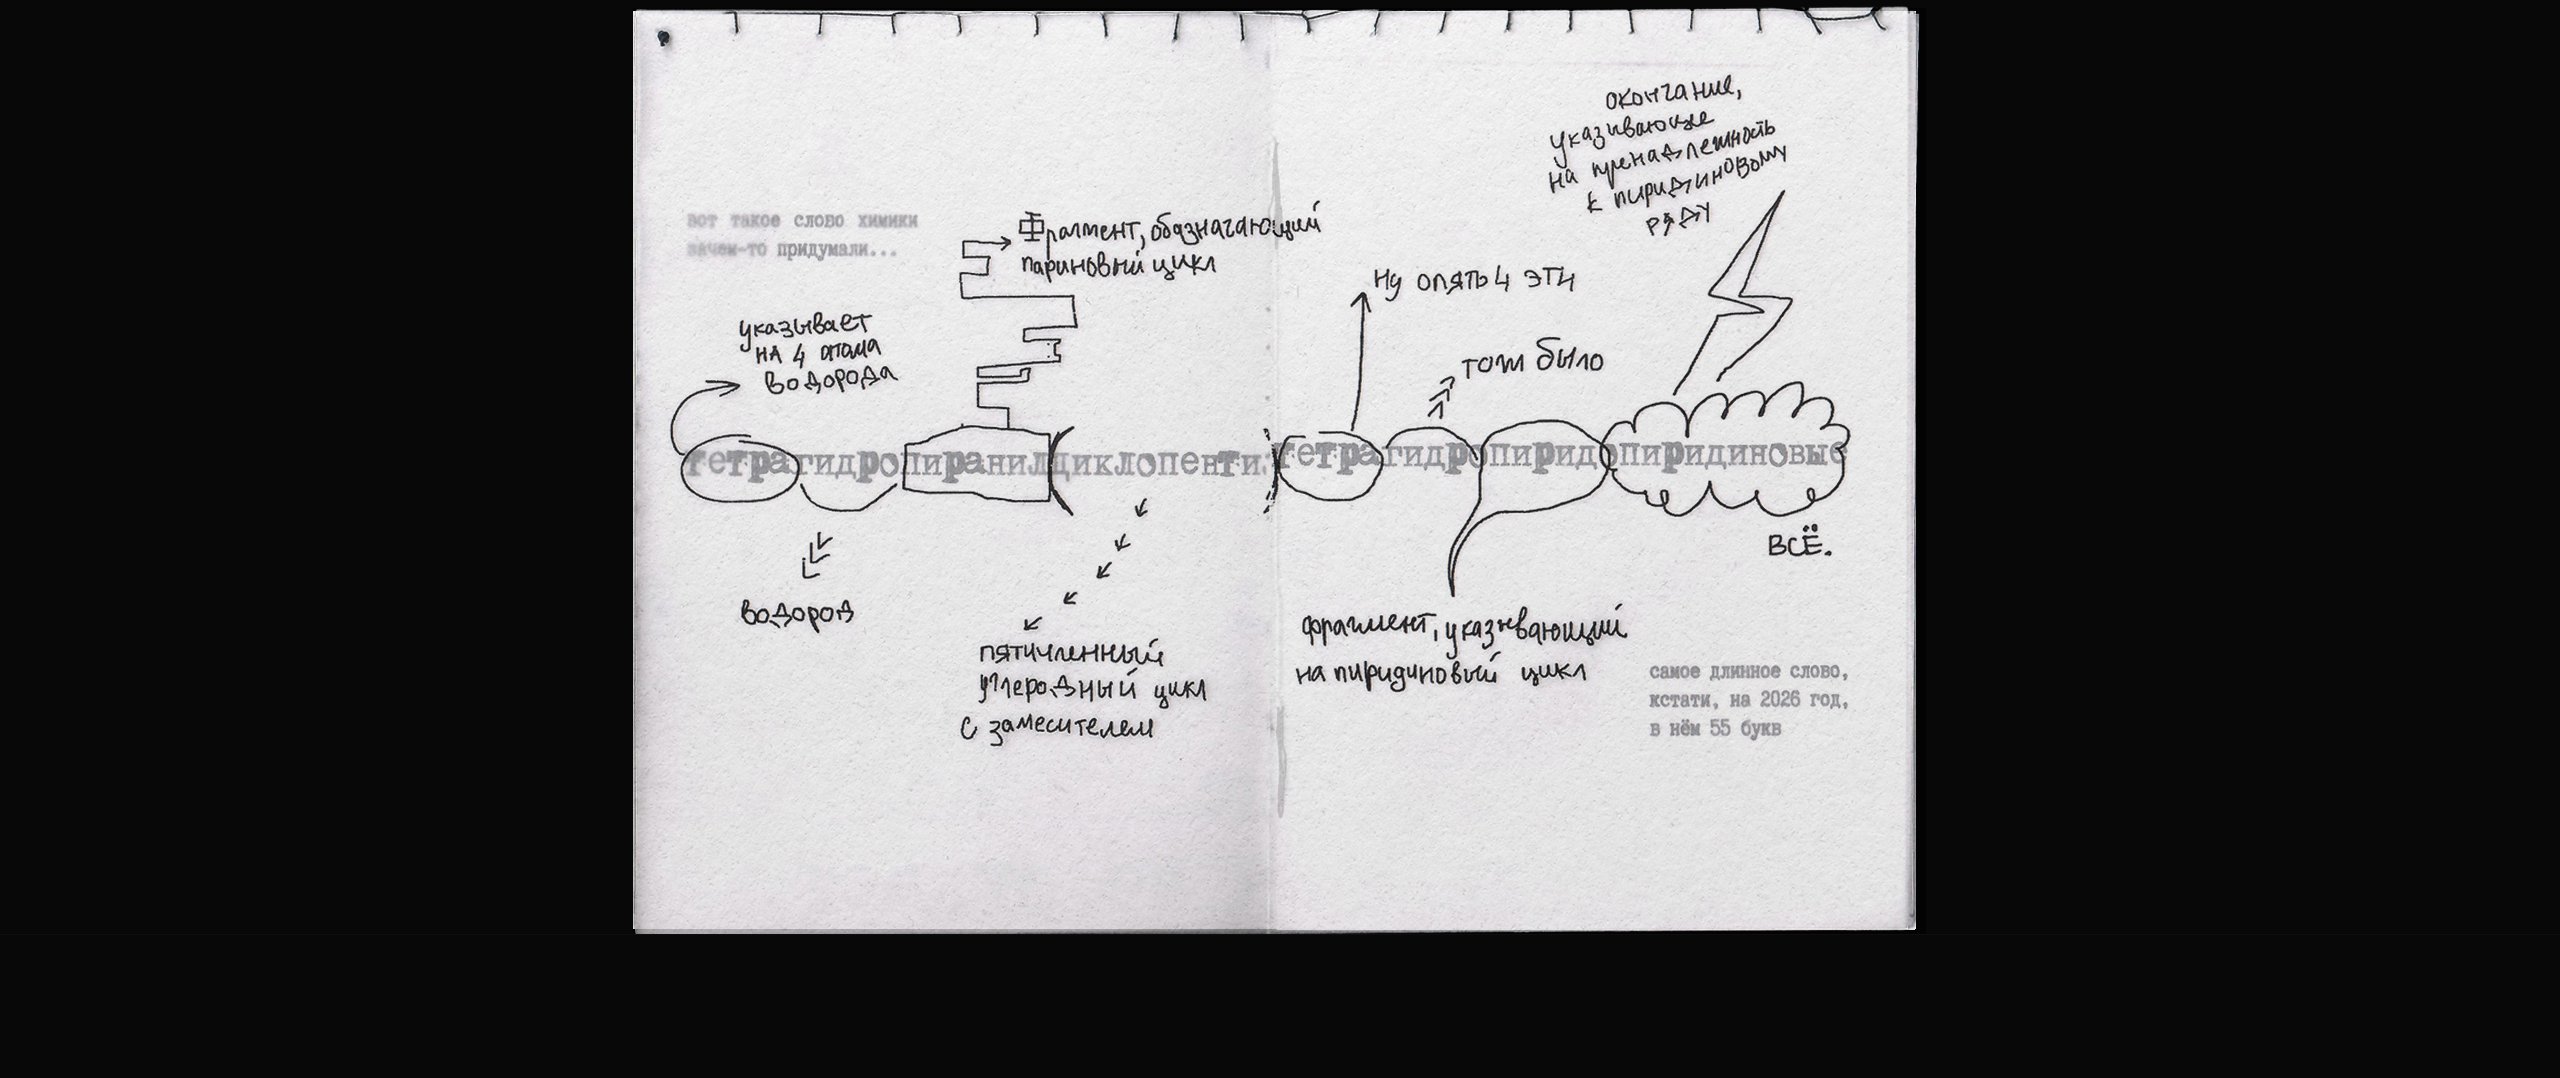 вот такое слово химики
зачем-то придумали...
Фрагмент, обазначающий
париновый цикл
указывает
на 4 атома
водорода
окончание,
указивающие
на пренадлежность
к пиридиновому
ряду
Ну опять 4 эти
тож было
тетрагидропиранилциклопентилтетрагидропиридопиридиновые
ВСЁ.
водород
пятичленный
углеродный цикл
с заместителем
фрагмент, указывающий
на пиридиновый цикл
самое длинное слово,
кстати, на 2026 год,
в нём 55 букв